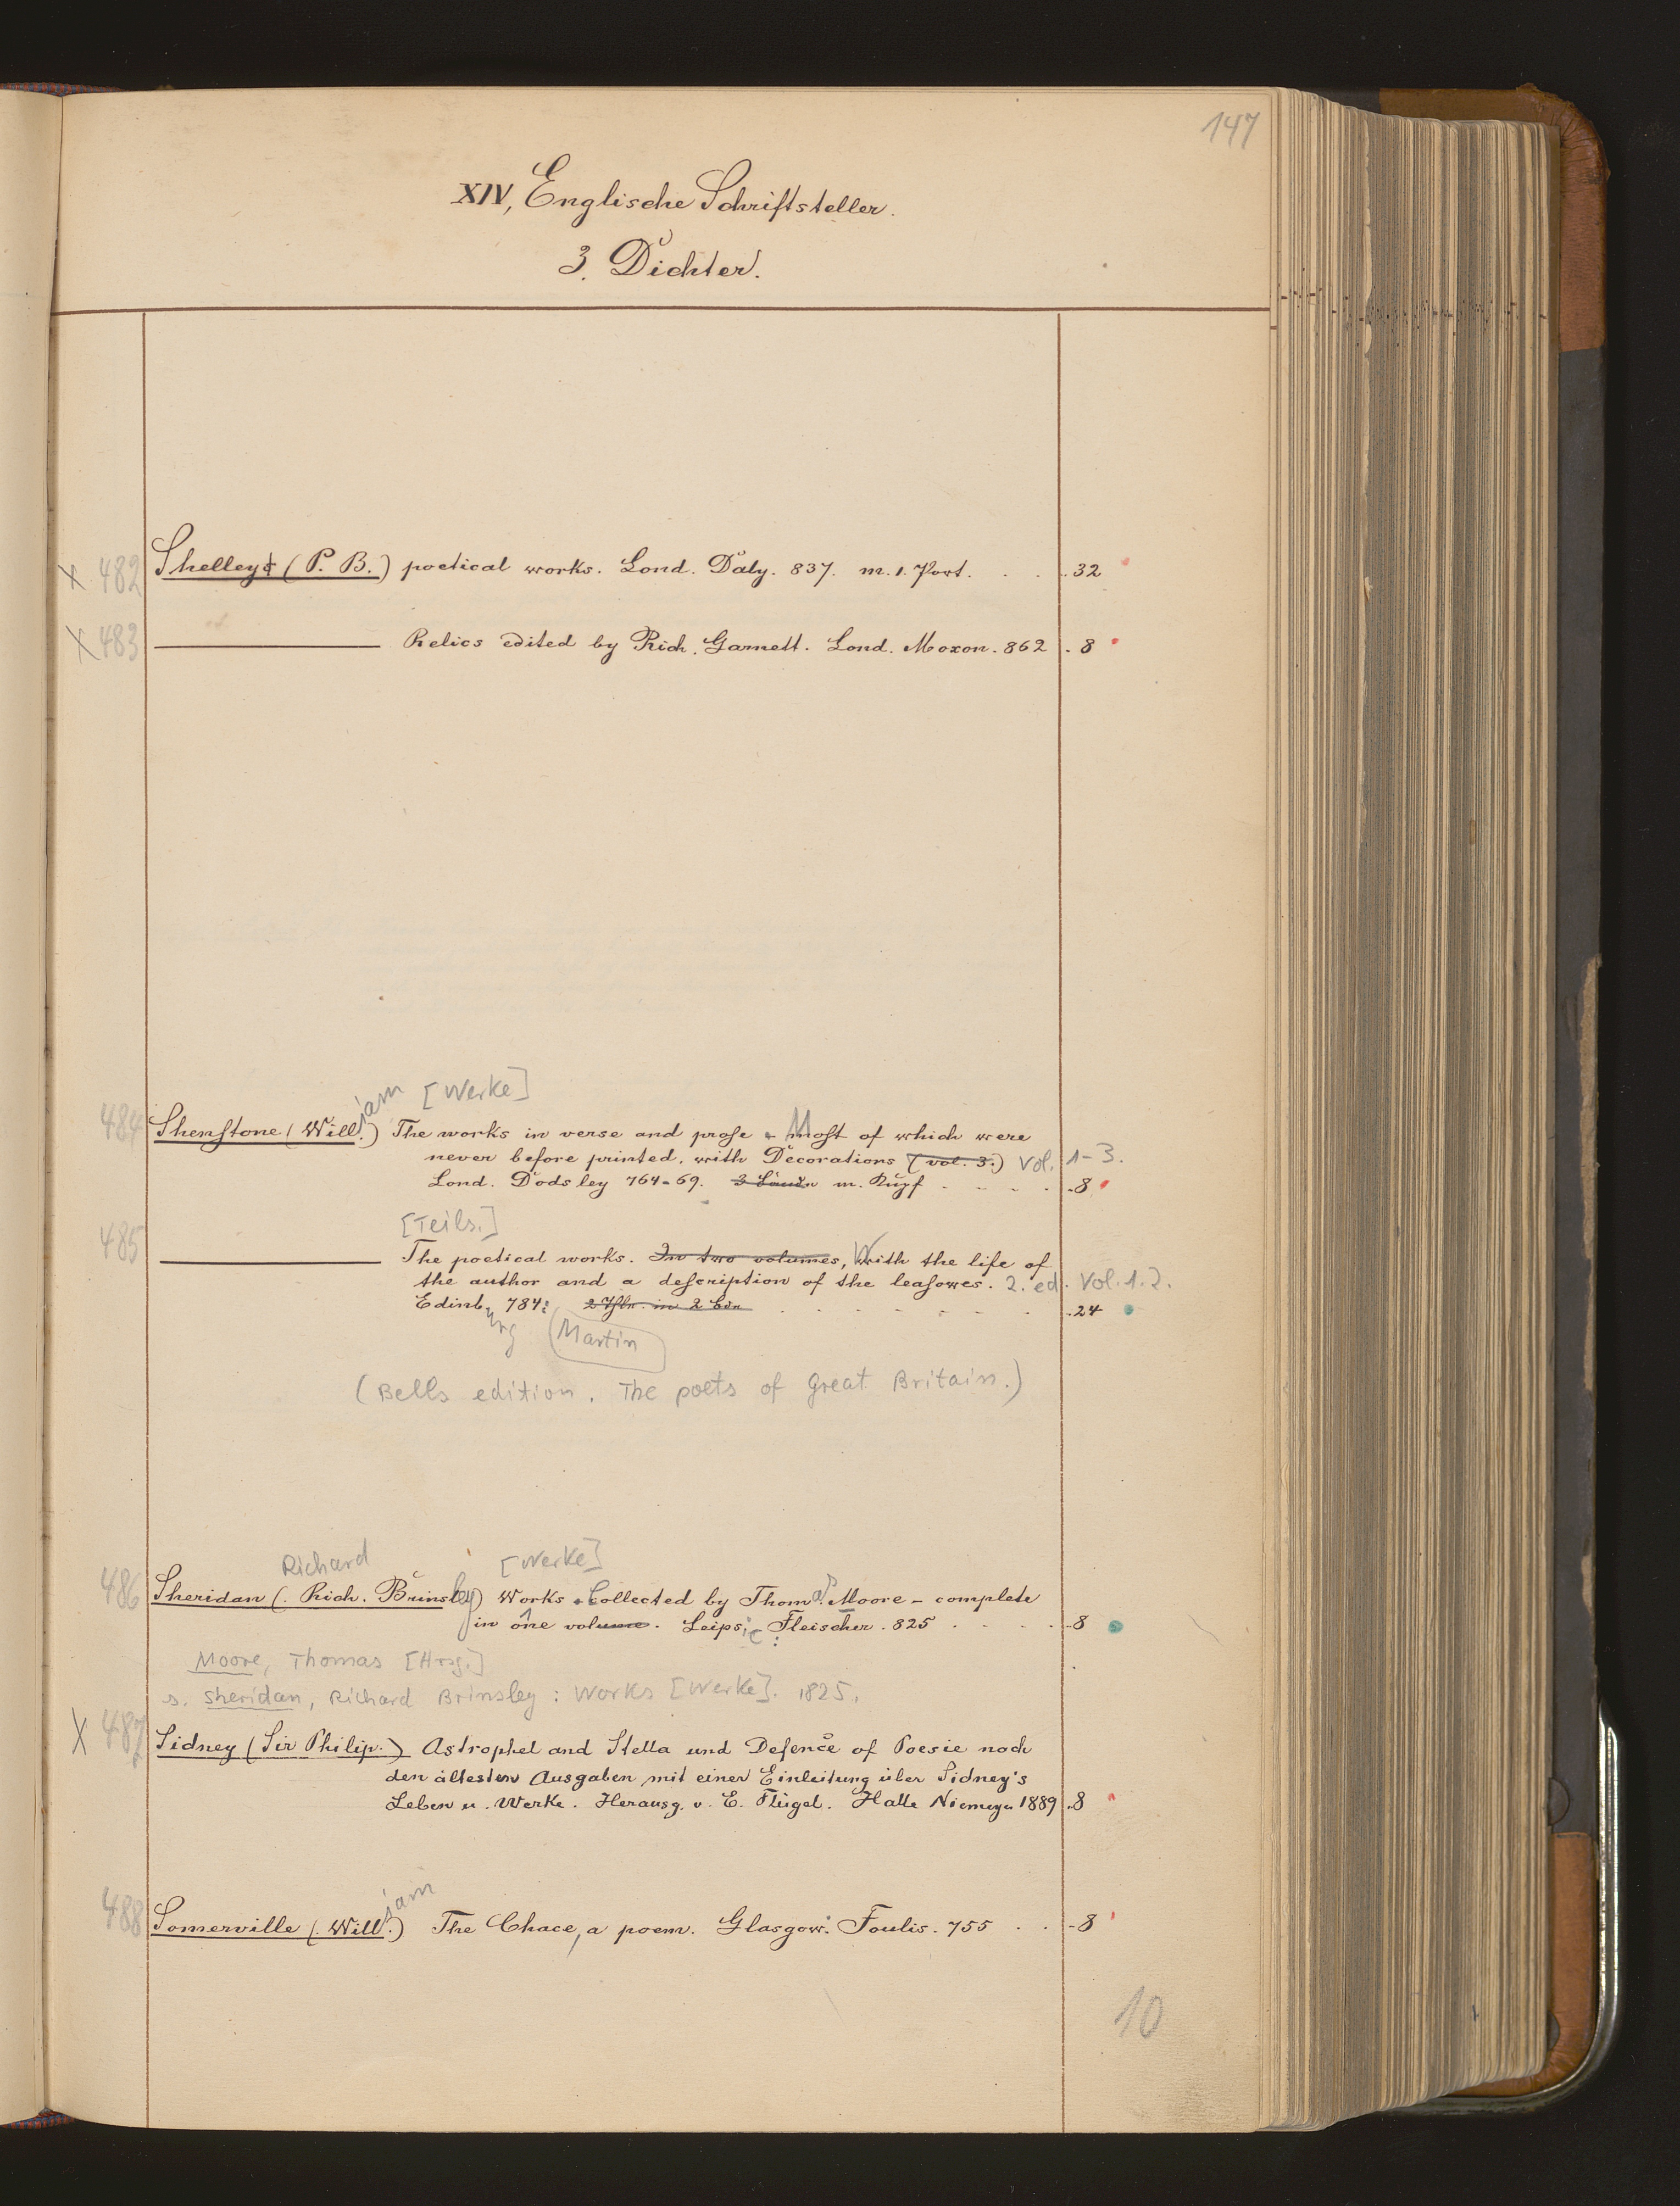 147
XIV, Englische Schriftsteller.
3. Dichter.
X 482 Shelley (P. B.) poetical works. Lond. Daly. 837. m. 1. Port. . . . 32
X 483 ——— Relics edited by Rich. Garnett. Lond. Moxon. 862 . 8
iam [Werke]
484 Shenstone (Will.) The works in verse and prose. Most of which were
never before printed. with Decorations (vol. 3.) Vol. 1-3.
Lond. Dodsley 764-69. 3 Bände m. Kupf . . . . . 8
[Teils.]
485 ——— The poetical works. In two volumes, With the life of
the author and a description of the leasowes. 2. ed. Vol. 1. 2.
Edinb. 784: 2 Thle. in 2 Bdn . . . . . . . 24
urg (Martin
(Bells edition. The poets of Great Britain.)
Richard [Werke]
486 Sheridan (Rich. Brinsley) Works. Collected by Thom. Moore - complete
in one volume. Leipsic: Fleischer. 825 . . . . . 8
Moore, Thomas [Hrsg.]
s. Sheridan, Richard Brinsley: Works [Werke]. 1825.
X 487 Sidney (Sir Philip.) Astrophel and Stella und Defence of Poesie nach
den ältesten Ausgaben mit einer Einleitung über Sidney's
Leben u. Werke. Herausg. v. E. Flügel. Halle Niemeyer 1889 . 8
iam
488 Somerville (Will.) The Chace, a poem. Glasgow: Foulis. 755 . . . 8
10